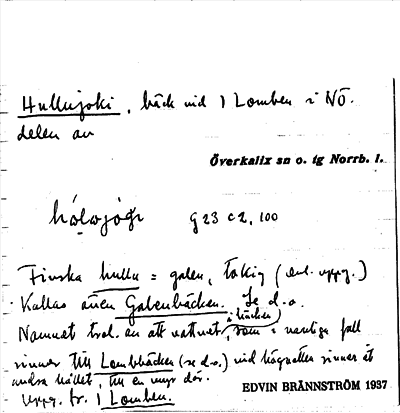 Hullujoki, bäck vid 1 Lomben i NÖ.
delen av
Överkalix sn o. tg Norrb. l.
hólojógi g 23 c 2, 100
Finska hullu = galen, tokig (enl. uppg.)
Kallas även Galenbäcken. Se d.o.
Namnet trol. av att vattnet i bäcken, som i vanliga fall
rinner till Lombbäcken (se d.o.) vid högvatten rinner åt
andra hållet, till en myr där.
Uppg. fr. 1 Lomben.
EDVIN BRÄNNSTRÖM 1937